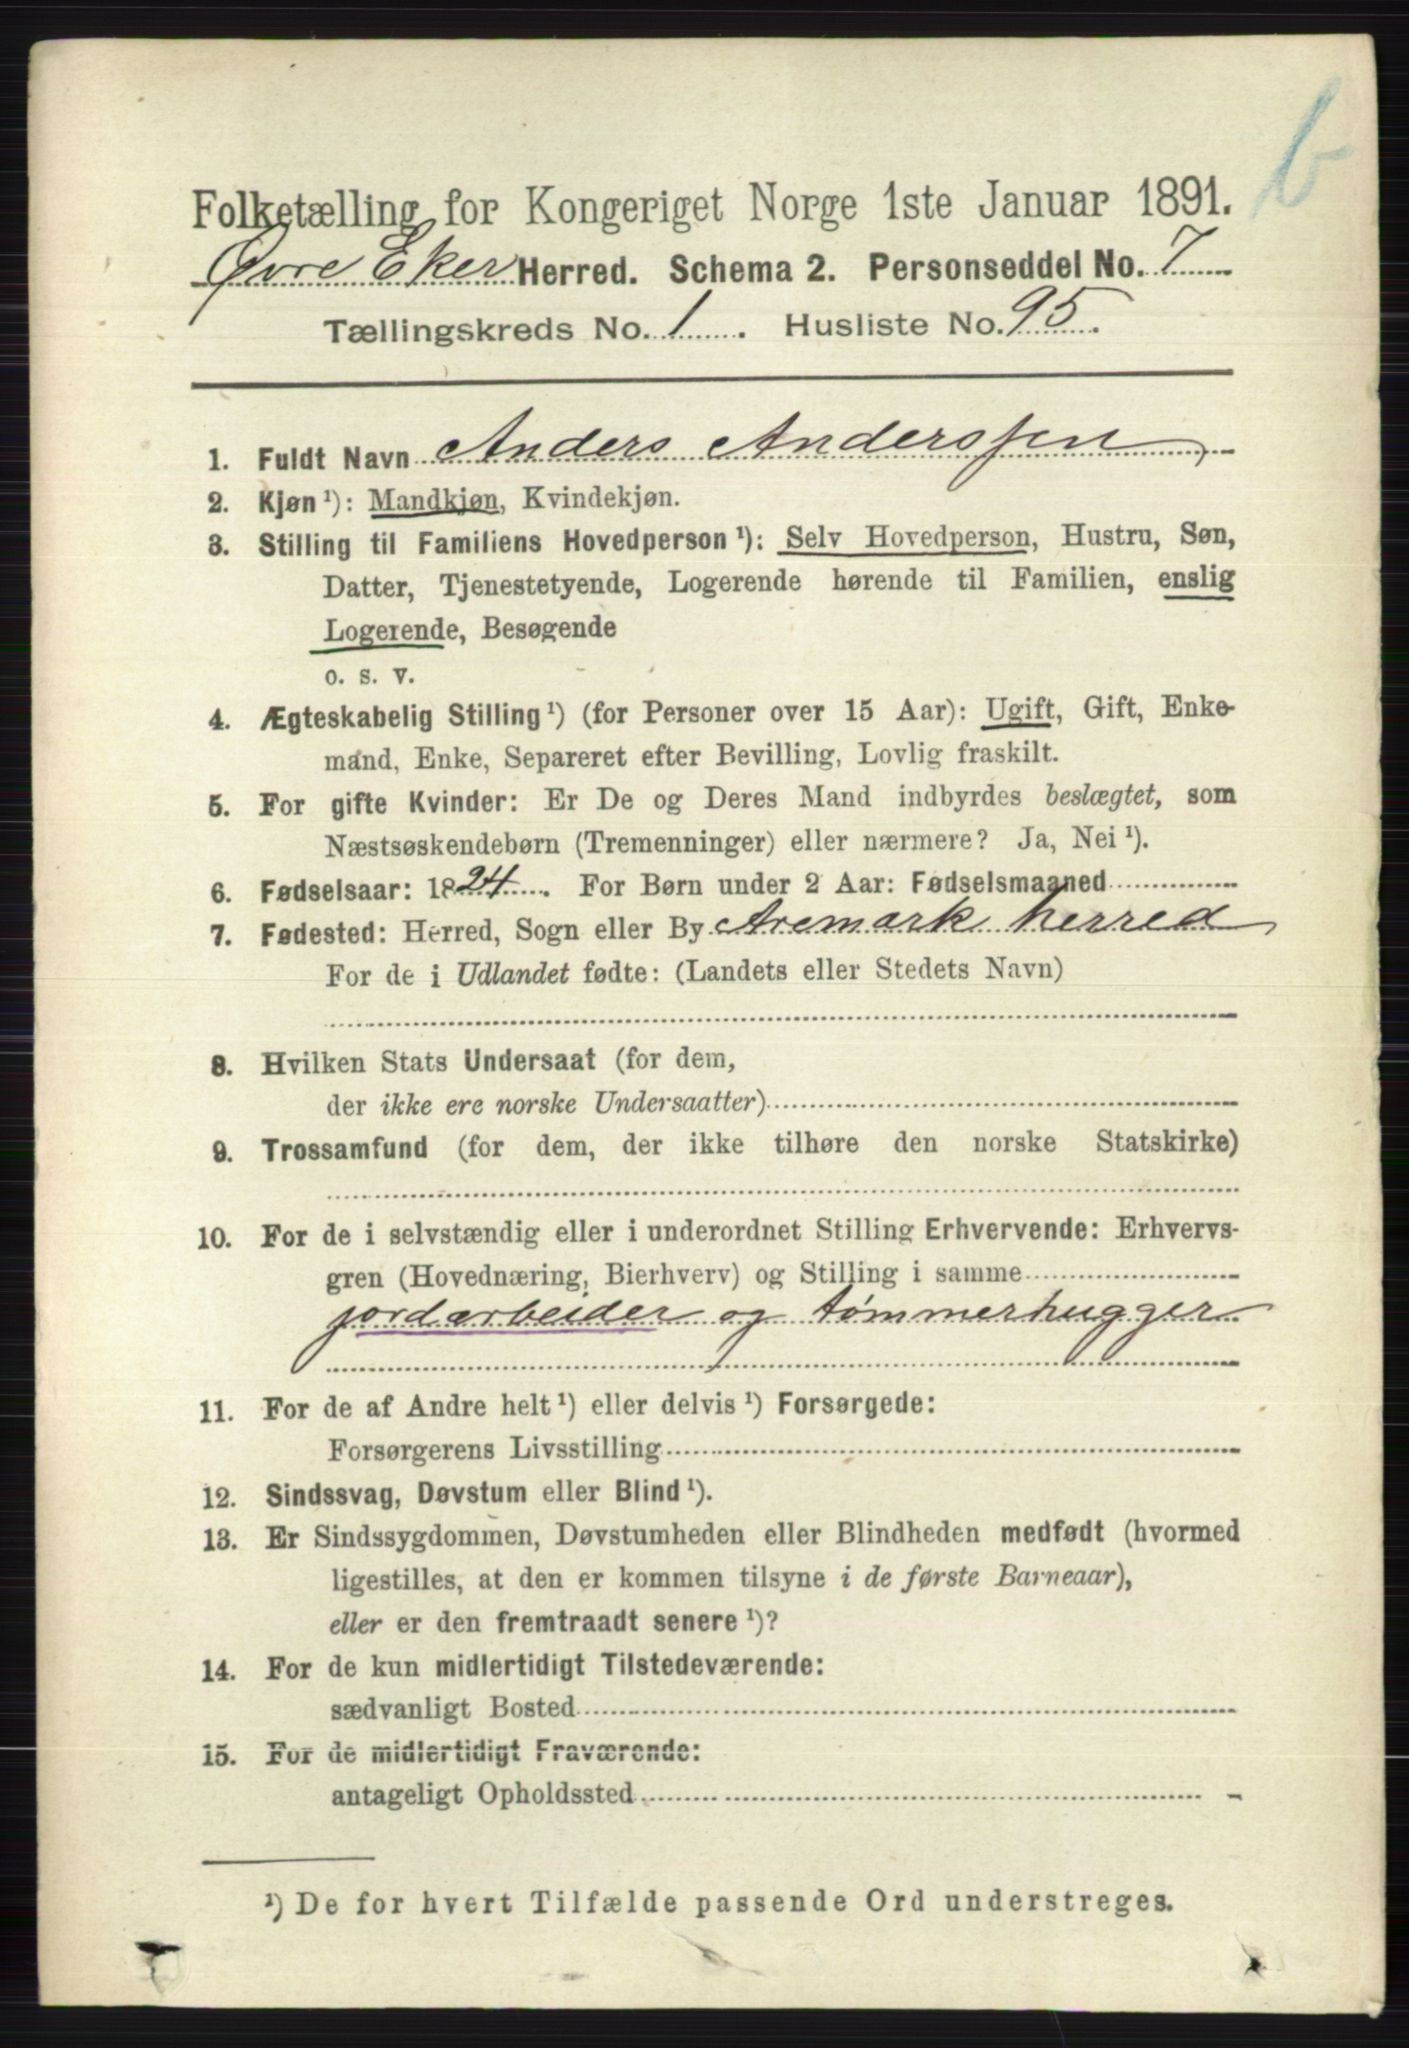 b
Folketælling for Kongeriget Norge 1ste Januar 1891.
Øvre Eker Herred. Schema 2. Personseddel No. 7
Tællingskreds No. 1. Husliste No. 95.
1. Fuldt Navn Anders Anderssen
2. Kjøn ¹): Mandkjøn, Kvindekjøn.
3. Stilling til Familiens Hovedperson ¹): Selv Hovedperson, Hustru, Søn,
Datter, Tjenestetyende, Logerende hørende til Familien, enslig
Logerende, Besøgende
o. s. v.
4. Ægteskabelig Stilling ¹) (for Personer over 15 Aar): Ugift, Gift, Enke-
mand, Enke, Separeret efter Bevilling, Lovlig fraskilt.
5. For gifte Kvinder: Er De og Deres Mand indbyrdes beslægtet, som
Næstsøskendebørn (Tremenninger) eller nærmere? Ja, Nei ¹).
6. Fødselsaar: 1824. For Børn under 2 Aar: Fødselsmaaned
7. Fødested: Herred, Sogn eller By Aremark herred
For de i Udlandet fødte: (Landets eller Stedets Navn)
8. Hvilken Stats Undersaat (for dem,
der ikke ere norske Undersaatter)
9. Trossamfund (for dem, der ikke tilhøre den norske Statskirke)
10. For de i selvstændig eller i underordnet Stilling Erhvervende: Erhvervs-
gren (Hovednæring, Bierhverv) og Stilling i samme
jordarbeider og tømmerhugger
11. For de af Andre helt ¹) eller delvis ¹) Forsørgede:
Forsørgerens Livsstilling
12. Sindssvag, Døvstum eller Blind ¹).
13. Er Sindssygdommen, Døvstumheden eller Blindheden medfødt (hvormed
ligestilles, at den er kommen tilsyne i de første Barneaar),
eller er den fremtraadt senere ¹)?
14. For de kun midlertidigt Tilstedeværende:
sædvanligt Bosted
15. For de midlertidigt Fraværende:
antageligt Opholdssted
¹) De for hvert Tilfælde passende Ord understreges.